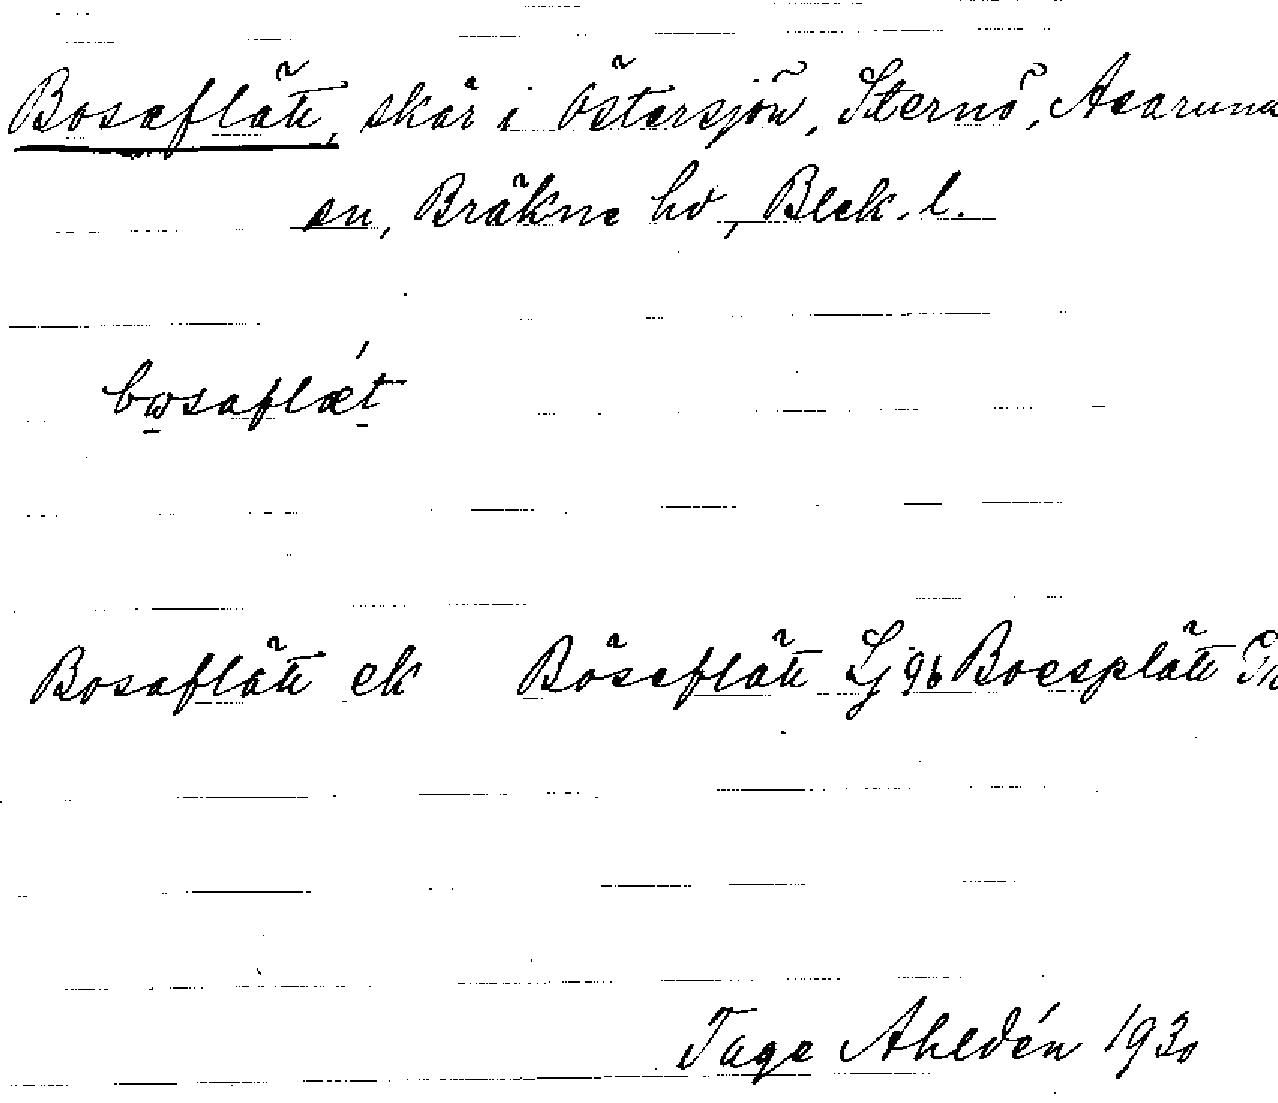 Bosaflätt, skär i Östersjön, Sternö, Asaruma
sn, Bräkne hd, Blek. l.
bωsaflǽt
Bosaflätt ek Böseflätt Sj 96 Boesplätt
Tage Ahldén 1930